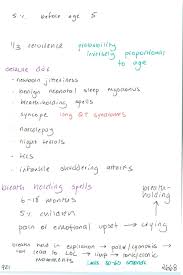 5% before age 5
1/3 recurrence probability
inversely proportional
to age
seizure ddx
- newborn jitteriness
- benign neonatal sleep myoclonus
- breath-holding spells
syncope long QT syndromes
narcolepsy
night terrors
- TICS
- infantile shuddering attacks
breath holding spells
breath-
holding
6-18 months
5% children
pain or emotional upset → crying
breath held in expiration → pale / cyanosis →
→ limp → tonic/clonic
movements